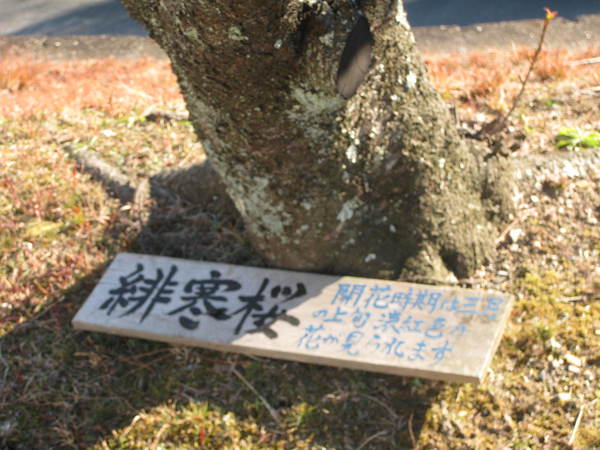 緋寒桜
開花時期は三月
の上旬 濃紅色の
花が見られます